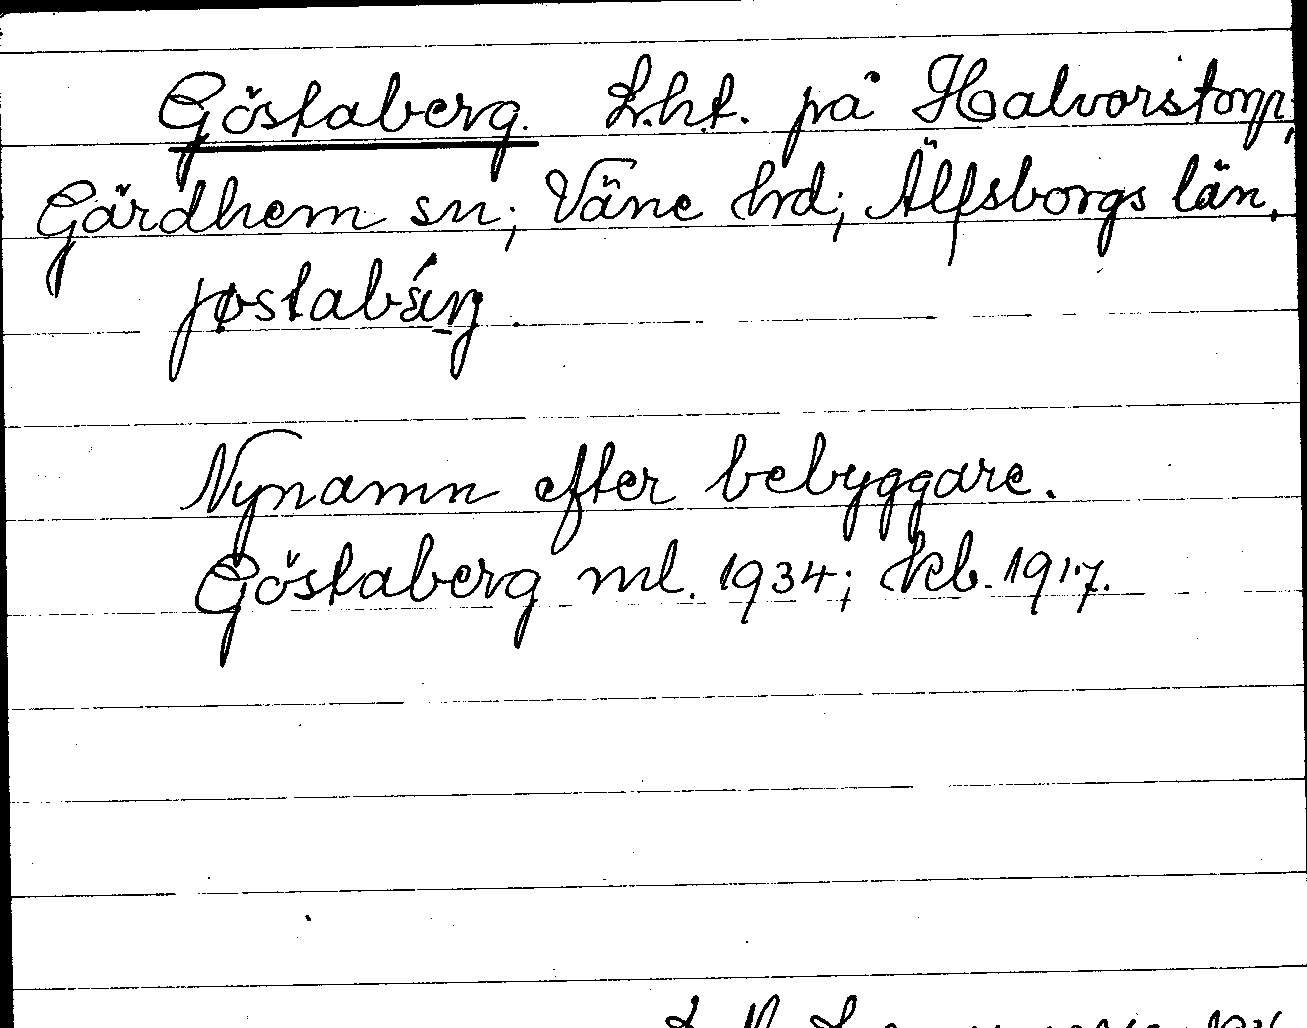 Göstaberg. L.ht. på Halvorstorp,
Gärdhem sn; Väne hrd; Älfsborgs län.
Nynamn efter bebyggare.
Göstaberg ml. 1934; kb. 1917.